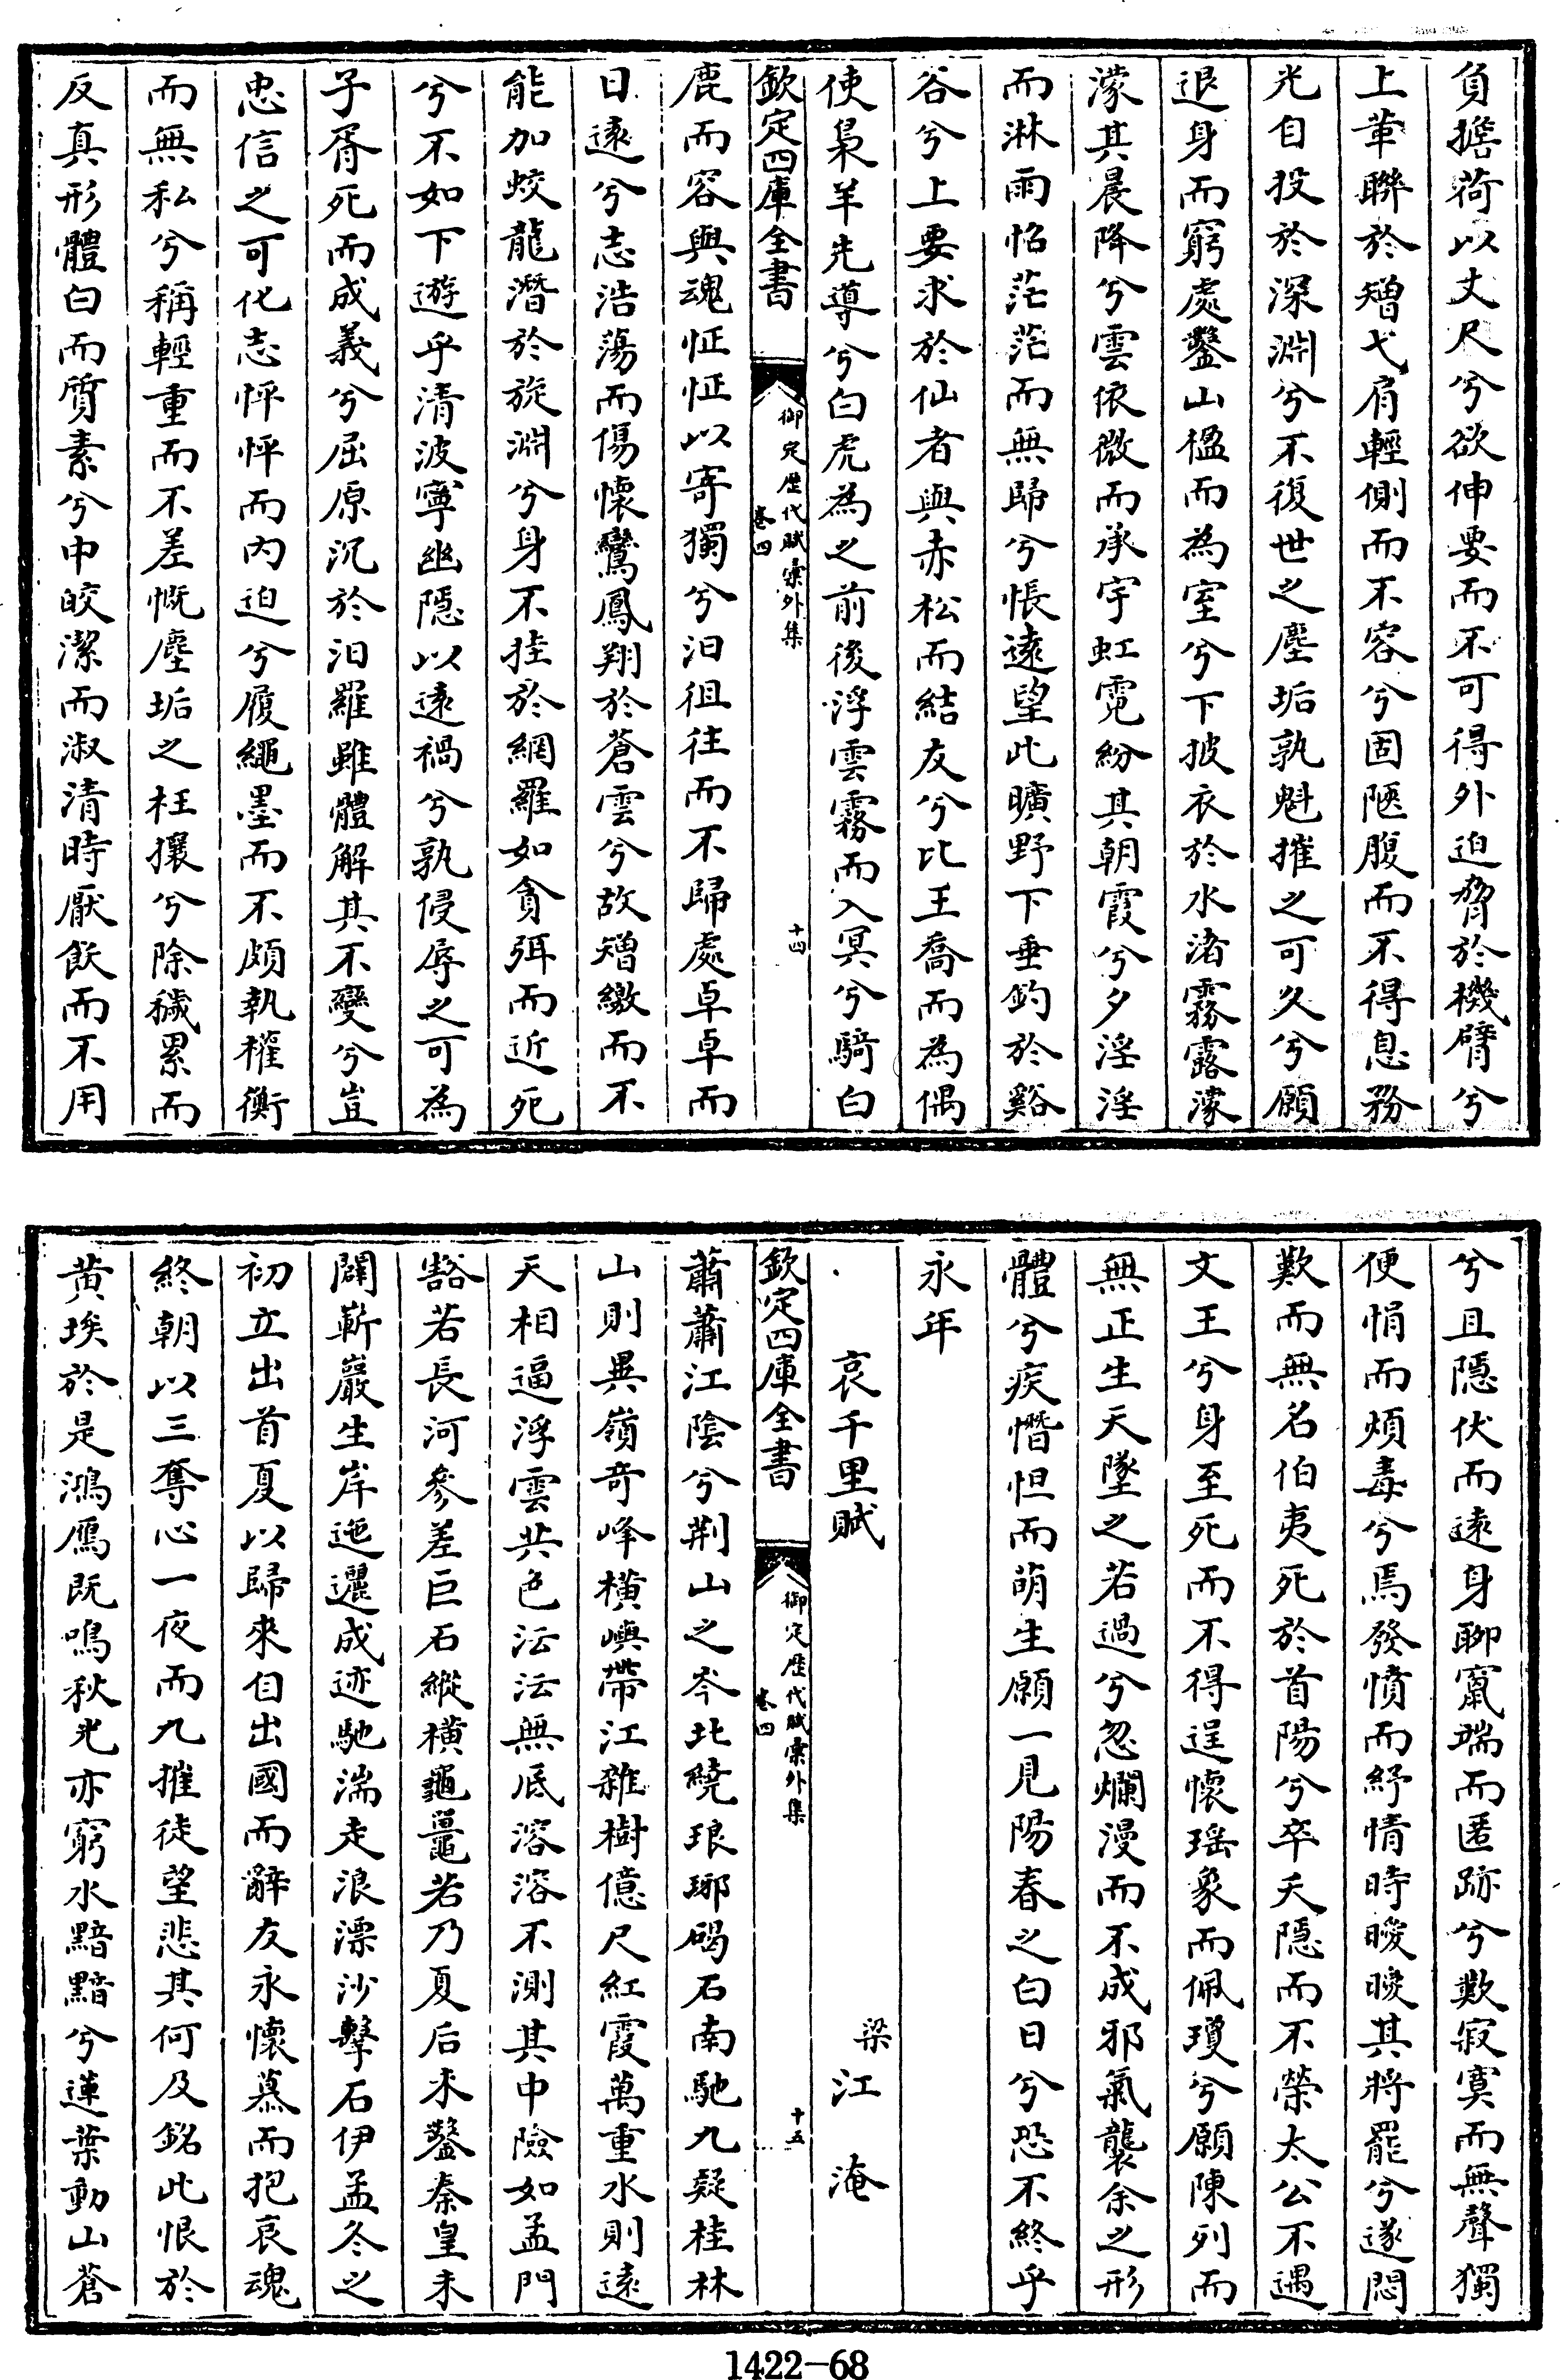 負擔荷以丈尺兮欲伸要而不可得外迫脅於機臂兮
上牽聯於矰弋肩輕側而不容兮固陿腹而不得息務
光自投於深淵兮不復世之塵垢孰魁摧之可久兮願
退身而窮處鑿山楹而為室兮下披衣於水渚霧露濛
濛其晨降兮雲依微而承宇虹霓紛其朝霞兮夕淫淫
而淋雨怊茫茫而無歸兮悵遠望此曠野下垂釣於谿
谷兮上要求於仙者與赤松而結友兮比王喬而為偶
使梟羊先導兮白虎為之前後浮雲霧而入冥兮騎白
欽定四庫全書
御定歷代賦彙外集
卷四
十四
鹿而容與魂怔怔以寄獨兮汩徂往而不歸處卓卓而
日遠兮志浩蕩而傷懷鸞鳳翔於蒼雲兮故矰繳而不
能加蛟龍潛於旋淵兮身不挂於網羅如貪弭而近死
兮不如下遊乎清波寧幽隱以遠禍兮孰侵辱之可為
子胥死而成義兮屈原沉於汨羅雖體解其不變兮豈
忠信之可化志怦怦而內迫兮履繩墨而不頗執權衡
而無私兮稱輕重而不差慨塵垢之枉攘兮除穢累而
反真形體白而質素兮中皎潔而淑清時厭飫而不用
兮且隱伏而遠身聊竄端而匿跡兮歎寂寞而無聲獨
便悁而煩毒兮焉發憤而紓情時曖曖其將罷兮遂悶
歎而無名伯夷死於首陽兮卒夭隱而不榮太公不遇
文王兮身至死而不得逞懷瑤象而佩瓊兮願陳列而
無正生天墜之若過兮忽爛漫而不成邪氣襲余之形
體兮疾憯怛而萌生願一見陽春之白日兮恐不終乎
永年
哀千里賦
梁 江 淹
欽定四庫全書
御定歷代賦彙外集
卷四
十五
蕭蕭江陰兮荆山之岑北繞琅琊碣石南馳九疑桂林
山則異嶺奇峰橫嶼帶江雜樹億尺紅霞萬重水則遠
天相逼浮雲共色沄沄無底溶溶不測其中險如孟門
豁若長河參差巨石縱橫龜鼉若乃夏后未鑿秦皇未
闢嶄巖生岸迤邐成迹馳湍走浪漂沙擊石伊孟冬之
初立出首夏以歸來自出國而辭友永懷慕而抱哀魂
終朝以三奪心一夜而九摧徒望悲其何及銘此恨於
黃埃於是鴻鴈既鳴秋光亦窮水黯黯兮蓮葉動山蒼
1422-68